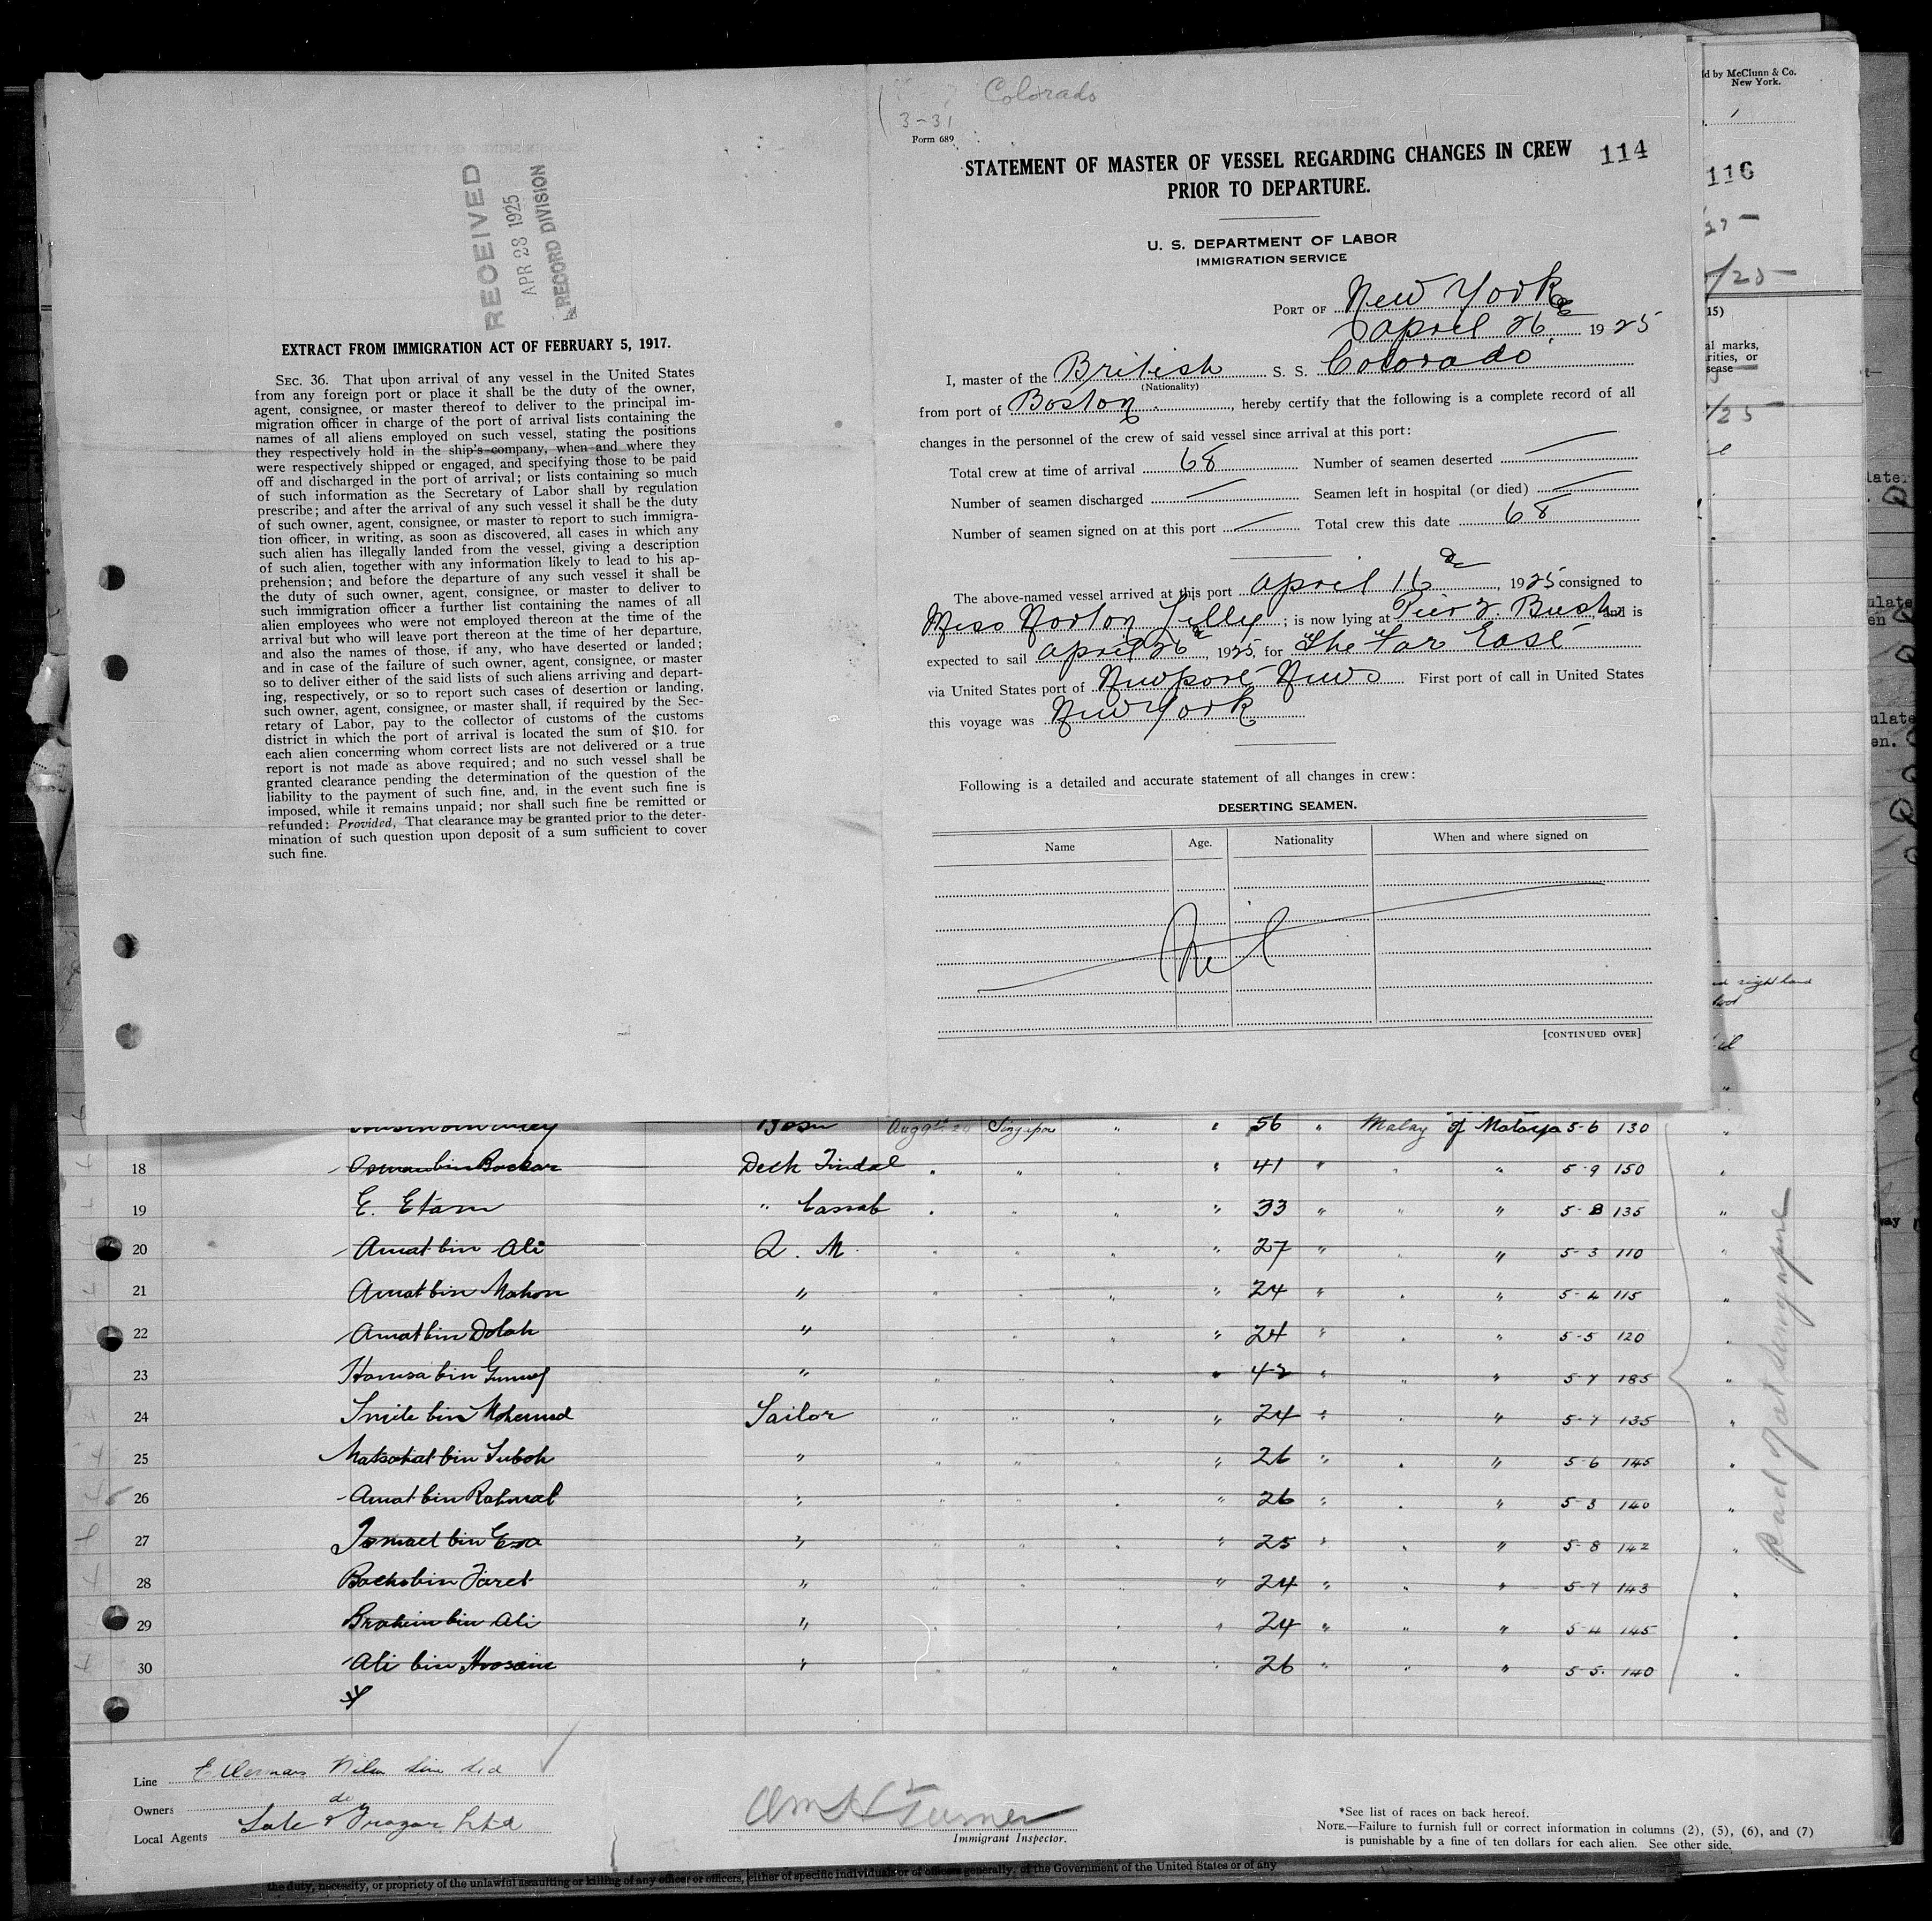 RECEIVED
APR 28 1925
RECORD DIVISION
EXTRACT FROM IMMIGRATION ACT OF FEBRUARY 5, 1917.
SEC. 36. That upon arrival of any vessel in the United States
from any foreign port or place it shall be the duty of the owner,
agent, consignee, or master thereof to deliver to the principal im-
migration officer in charge of the port of arrival lists containing the
names of all aliens employed on such vessel, stating the positions
they respectively hold in the ship's company, when and where they
were respectively shipped or engaged, and specifying those to be paid
off and discharged in the port of arrival; or lists containing so much
of such information as the Secretary of Labor shall by regulation
prescribe; and after the arrival of any such vessel it shall be the duty
of such owner, agent, consignee, or master to report to such immigra-
tion officer, in writing, as soon as discovered, all cases in which any
such alien has illegally landed from the vessel, giving a description
of such alien, together with any information likely to lead to his ap-
prehension; and before the departure of any such vessel it shall be
the duty of such owner, agent, consignee, or master to deliver to
such immigration officer a further list containing the names of all
alien employees who were not employed thereon at the time of the
arrival but who will leave port thereon at the time of her departure,
and also the names of those, if any, who have deserted or landed;
and in case of the failure of such owner, agent, consignee, or master
so to deliver either of the said lists of such aliens arriving and depart-
ing, respectively, or so to report such cases of desertion or landing,
such owner, agent, consignee, or master shall, if required by the Sec-
retary of Labor, pay to the collector of customs of the customs
district in which the port of arrival is located the sum of $10. for
each alien concerning whom correct lists are not delivered or a true
report is not made as above required; and no such vessel shall be
granted clearance pending the determination of the question of the
liability to the payment of such fine, and, in the event such fine is
imposed, while it remains unpaid; nor shall such fine be remitted or
refunded: Provided, That clearance may be granted prior to the deter-
mination of such question upon deposit of a sum sufficient to cover
such fine.
Colorado
3-31
Form 689
STATEMENT OF MASTER OF VESSEL REGARDING CHANGES IN CREW 114
PRIOR TO DEPARTURE.
U. S. DEPARTMENT OF LABOR
IMMIGRATION SERVICE
PORT OF New York
April 26 1925
I, master of the British S. S. Colorado
(Nationality)
from port of Boston, hereby certify that the following is a complete record of all
changes in the personnel of the crew of said vessel since arrival at this port:
Total crew at time of arrival 68 Number of seamen deserted —
Number of seamen discharged — Seamen left in hospital (or died) —
Number of seamen signed on at this port — Total crew this date 68
The above-named vessel arrived at this port April 16, 1925 consigned to
Mess Norton Lilly; is now lying at Pier 2. Bush, and is
expected to sail April 26, 1925, for The Far East
via United States port of Newport News First port of call in United States
this voyage was New York
Following is a detailed and accurate statement of all changes in crew:
DESERTING SEAMEN.
Name Age. Nationality When and where signed on
Nil
[CONTINUED OVER]
d by McClunn & Co.
New York.
116
/25
15)
al marks,
rities, or
sease
/25
right hand
foot
Bosn Aug 9 24 Singapore " " 56 " Malay of Malaya 5-6 130 "
18 Osman bin Backar Deck Tindal " " " 41 " " " 5-9 150 "
19 E. Etam " Cassab " " " " 33 " " " 5-8 135 "
20 Amat bin Ali Q. M. " " " " 27 " " " 5-3 110 "
21 Amat bin Mahon " " " " " 24 " " " 5-4 115 "
22 Amat bin Dolah " " " " " 24 " " " 5-5 120 "
23 Hamsa bin " " " " " 42 " " " 5-7 185 "
24 Smile bin Mohamed Sailor " " " " 24 " " " 5-7 135 "
25 Matsahat bin Suboh " " " " " 26 " " " 5-6 145 "
26 Amat bin Rahmat " " " " " 26 " " " 5-3 140 "
27 Ismael bin Esa " " " " " 25 " " " 5-8 142 "
28 bin Jaret " " " " " 24 " " " 5-7 143 "
29 Brahim bin Ali " " " " " 24 " " " 5-4 145 "
30 Ali bin Hosain " " " " " 26 " " " 5-5 140 "
Paid off at Singapore
Line Ellermans Wilson Line Ltd
Owners do
Local Agents
Turner
Immigrant Inspector.
*See list of races on back hereof.
NOTE.—Failure to furnish full or correct information in columns (2), (5), (6), and (7)
is punishable by a fine of ten dollars for each alien. See other side.
the duty, necessity, or propriety of the unlawful assaulting or killing of any officer or officers, either of specific individuals or of officers generally, of the Government of the United States or of any